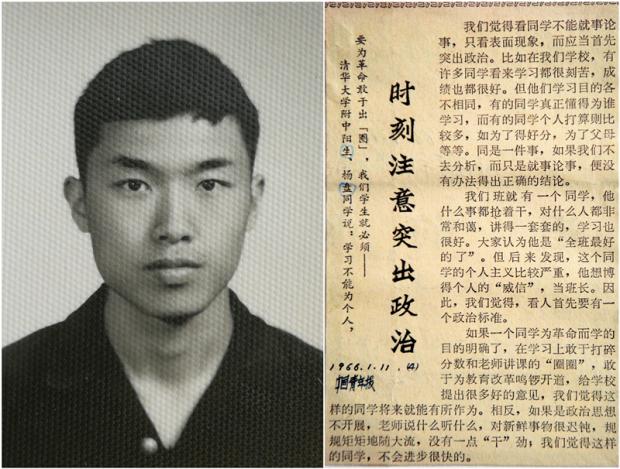 清华大学附中阳生、杨盘同学说：学习不能为个人，
要为革命敢于出「圈」，我们学生就必须——
时刻注意突出政治
1966.1.11. (4)
中国青年报
我们觉得看同学不能就事论
事，只看表面现象，而应当首先
突出政治。比如在我们学校，有
许多同学看来学习都很刻苦，成
绩也都很好。但他们学习目的各
不相同，有的同学真正懂得为谁
学习，而有的同学个人打算则比
较多，如为了得好分，为了父母
等等。同是一件事，如果我们不
去分析，而只是就事论事，便没
有办法得出正确的结论。
我们班就有一个同学，他
什么事都抢着干，对什么人都非
常和蔼，讲得一套套的，学习也
很好。大家认为他是“全班最好
的了”。但后来发现，这个同
学的个人主义比较严重，他想博
得个人的“威信”，当班长。因
此，我们觉得，看人首先要有一
个政治标准。
如果一个同学为革命而学的
目的明确了，在学习上敢于打碎
分数和老师讲课的“圈圈”，敢
于为教育改革鸣锣开道，给学校
提出很多好的意见，我们觉得这
样的同学将来就能有所作为。相反，如果是政治思想
不开展，老师说什么听什么，对新鲜事物很迟钝，规
规矩矩地随大流，没有一点“干”劲；我们觉得这样
的同学，不会进步很快的。